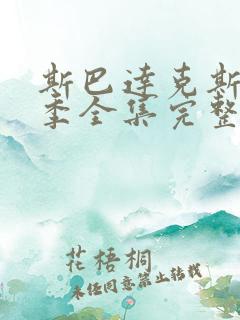 斯巴达克斯
季全集完整
花梧桐
未经同意禁止转载